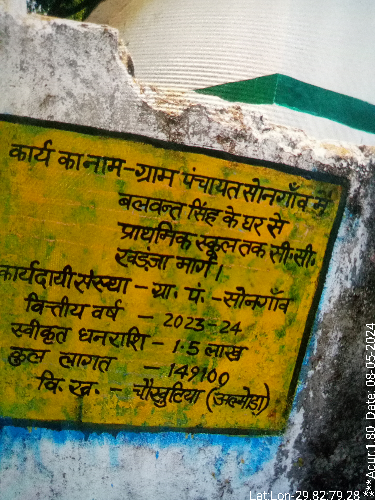 कार्य का नाम-ग्राम पंचायत सोनगाँव में
बलवन्त सिंह के घर से
प्राथमिक स्कूल तक सी.सी.
खड़ंजा मार्ग।
कार्यदायी संस्था - ग्रा. पं. -सोनगाँव
वित्तीय वर्ष - 2023-24
स्वीकृत धनराशि - 1.5 लाख
कुल लागत - 149100
वि. ख. - चौखुटिया (अल्मोड़ा)
Lat:Lon-29.82:79.28 ***Acur:1.80 Date: 08-05-2024